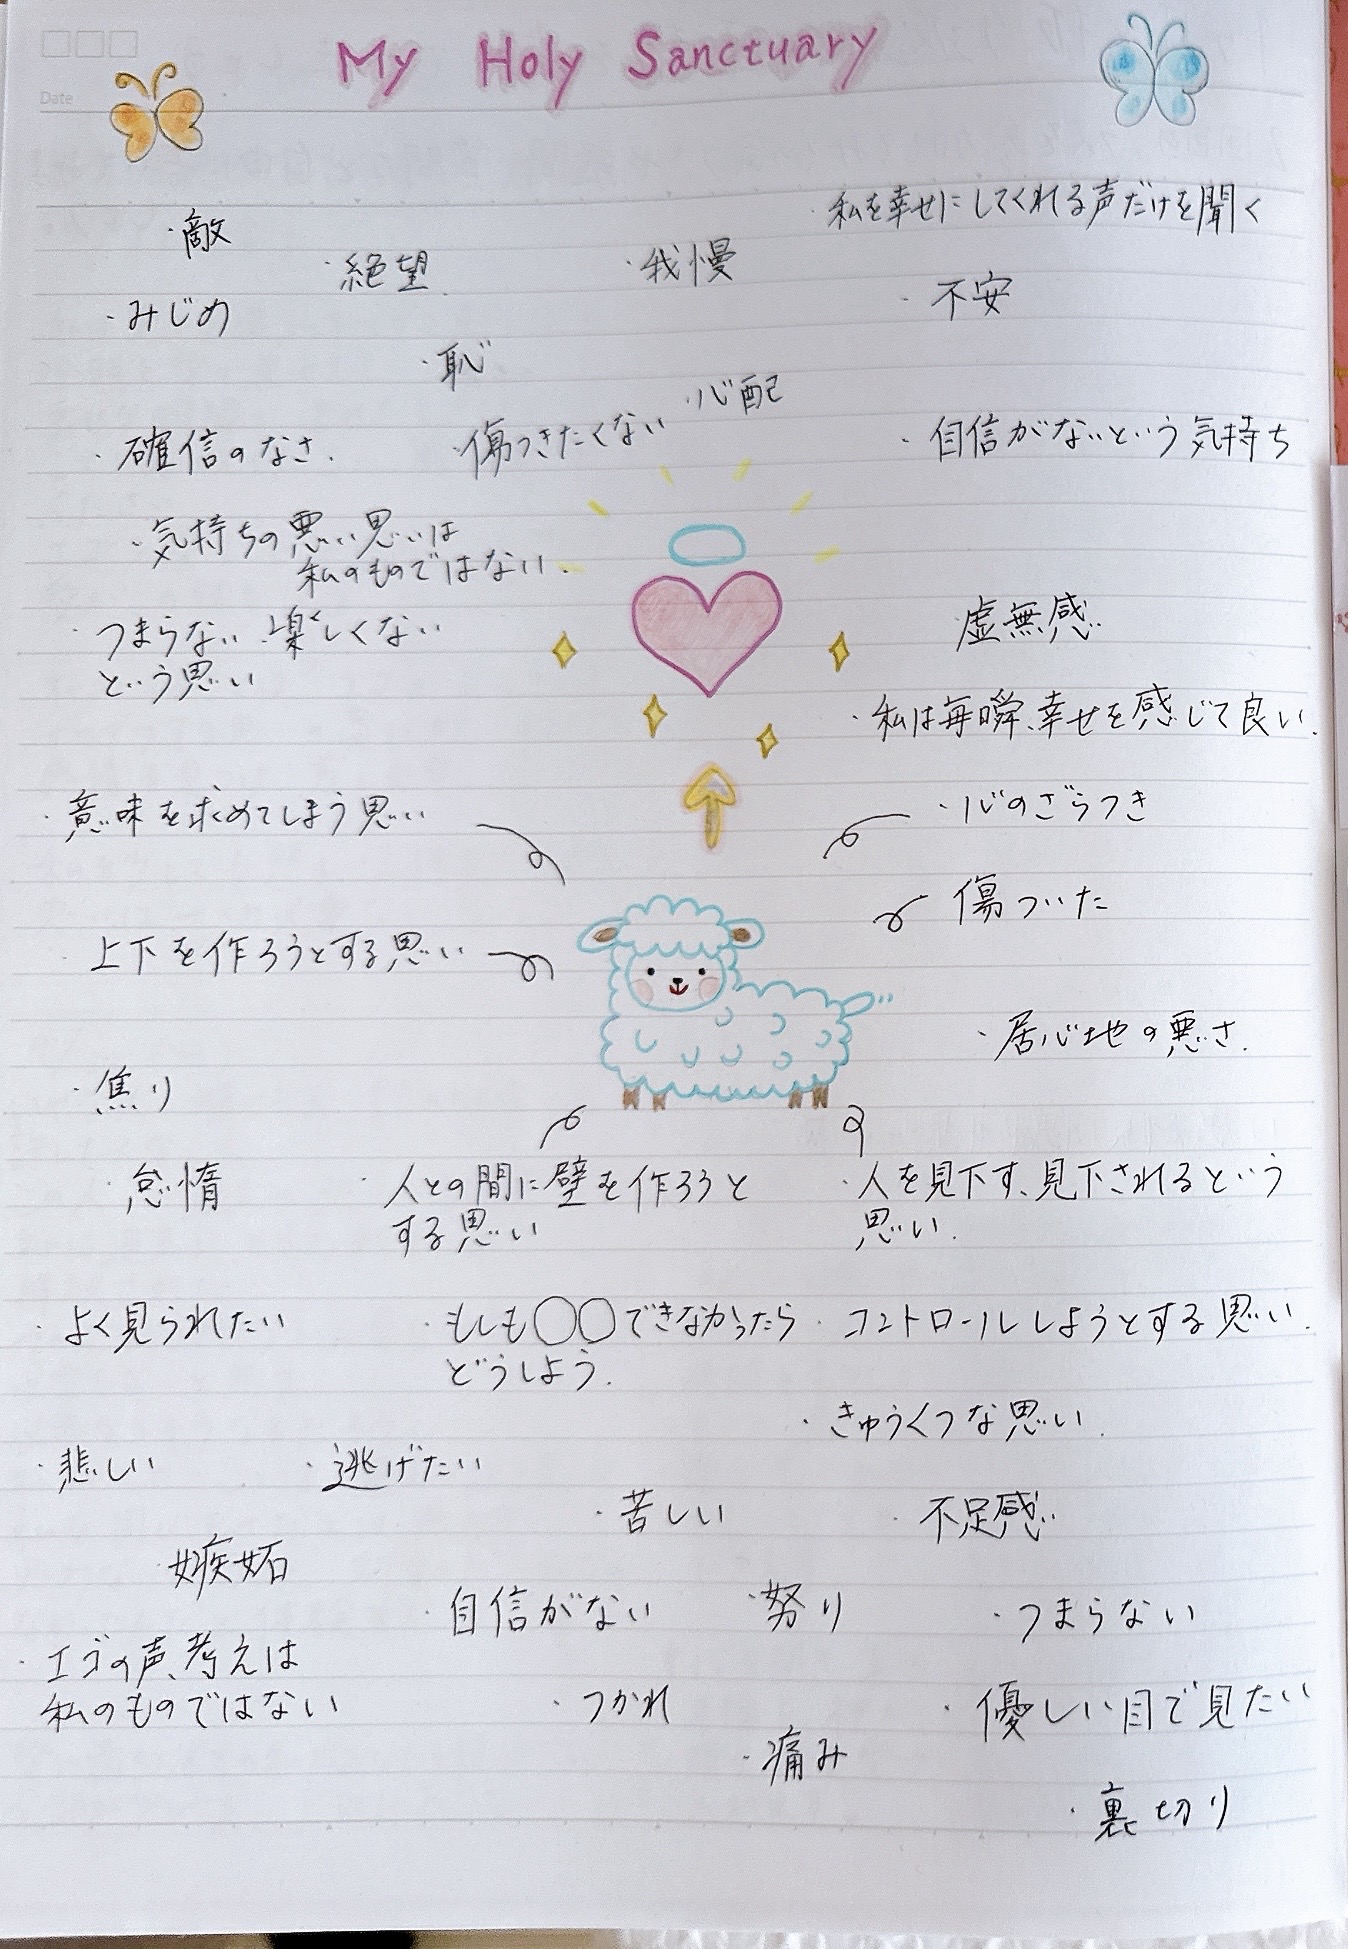 My Holy Sanctuary
Date
・私を幸せにしてくれる声だけを聞く
・敵
・絶望
・我慢
・不安
・みじめ
・恥
・心配
・確信のなさ.
・傷つきたくない
・自信がないという気持ち
・気持ちの悪い思いは
私のものではない.
・つまらない、楽しくない
という思い
・虚無感
・私は毎瞬、幸せを感じて良い.
・意味を求めてしまう思い
・心のざらつき
・傷ついた
・上下を作ろうとする思い
・居心地の悪さ.
・焦り
・怠惰
・人との間に壁を作ろうと
する思い
・人を見下す、見下されるという
思い.
・よく見られたい
・もしも〇〇できなかったら
どうしよう.
・コントロールしようとする思い.
・きゅうくつな思い.
・悲しい
・逃げたい
・苦しい
・不足感
・嫉妬
・自信がない
・努り
・つまらない
・エゴの声、考えは
私のものではない
・つかれ
・優しい目で見たい
・痛み
・裏切り